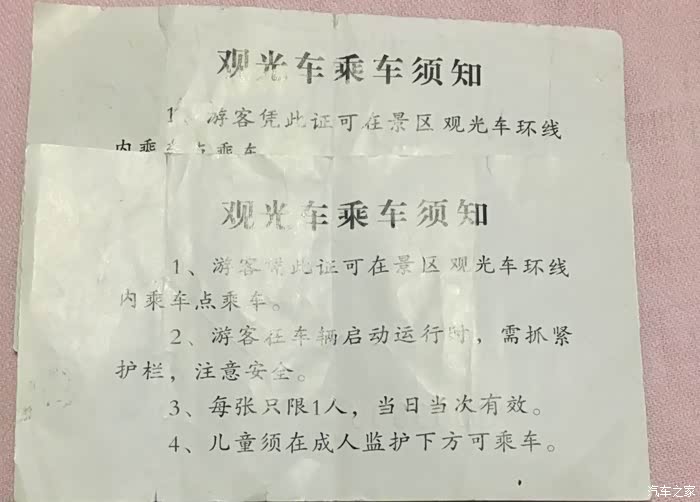 观光车乘车须知
1、游客凭此证可在景区观光车环线
内乘车点乘车
观光车乘车须知
1、游客凭此证可在景区观光车环线
内乘车点乘车。
2、游客在车辆启动运行时，需抓紧
护栏，注意安全。
3、每张只限1人，当日当次有效。
4、儿童须在成人监护下方可乘车。
汽车之家